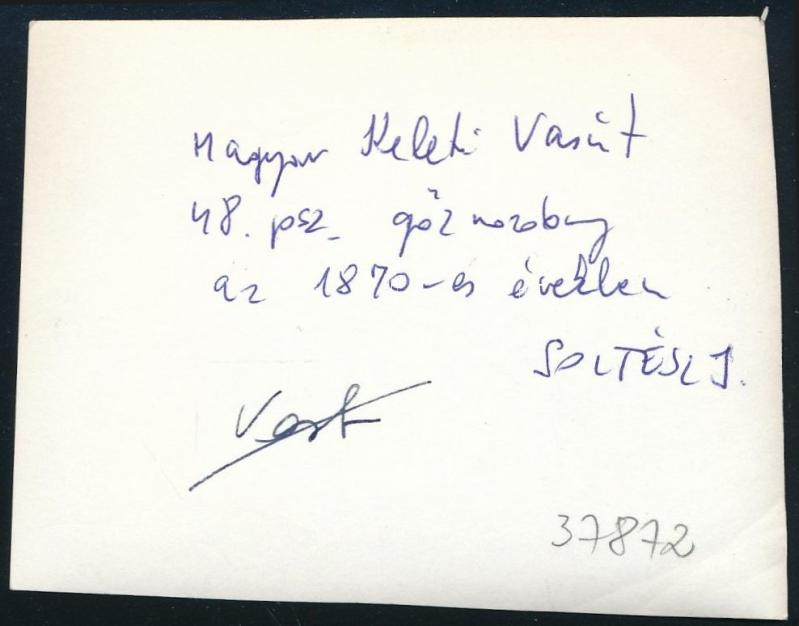 Magyar Keleti Vasút
48. psz. gőzmozdony
az 1870-es években
SOLTÉSZ J.
37872